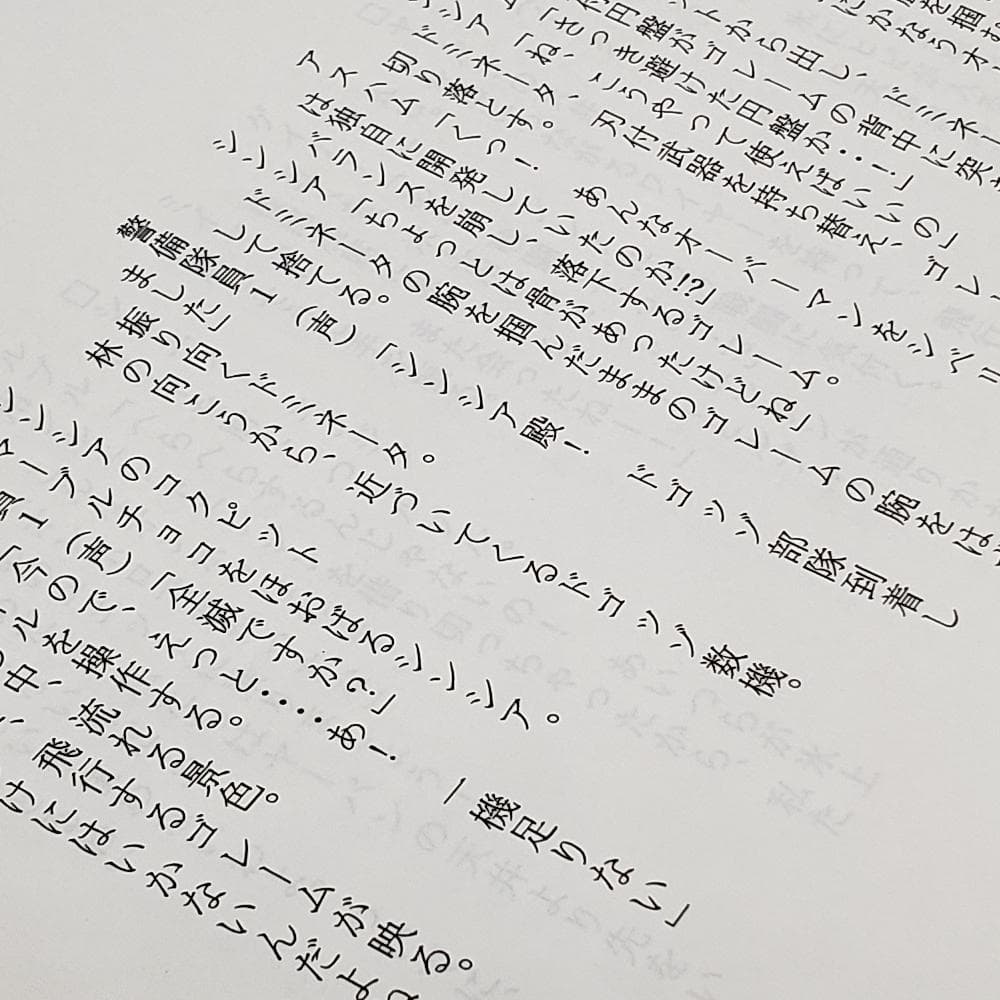 腕を掴む
にかなうオ
ットから出し、ドミネー
付円盤がゴレームの背中に突き
「さっき避けた円盤か・・!」
シア「ね、こうやって使えばいいの」
ドミネータ、刃付武器を持ち替え、ゴレ
切り落とす。
アスハム「くっ! あんなオーバーマンをシベリ
は独自に開発していたのか!?」
バランスを崩し、落下するゴレーム。
シンシア「ちょっとは骨があったけどね」
ドミネータの腕を掴んだままのゴレームの腕をはが
して捨てる。
警備隊員1(声)「シンシア殿! ドゴッゾ部隊到着し
ました」
振り向くドミネータ。
林の向こうから、近づいてくるドゴッゾ数機。
シンシアのコクピット
マーブルチョコをほおばるシンシア。
員1(声)「全滅ですか?」
「今ので、えっと・・・・あ! 一機足りない」
ルを操作する。
中、流れる景色。
、飛行するゴレームが映る。
けにはいかないんだよね